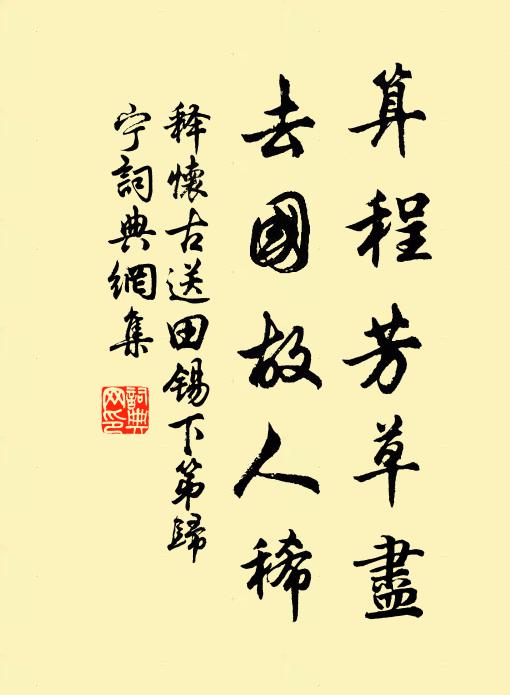 算程芳草盡
去國故人稀
释懷古送田锡下第歸
宁詞典網集
詞典网印